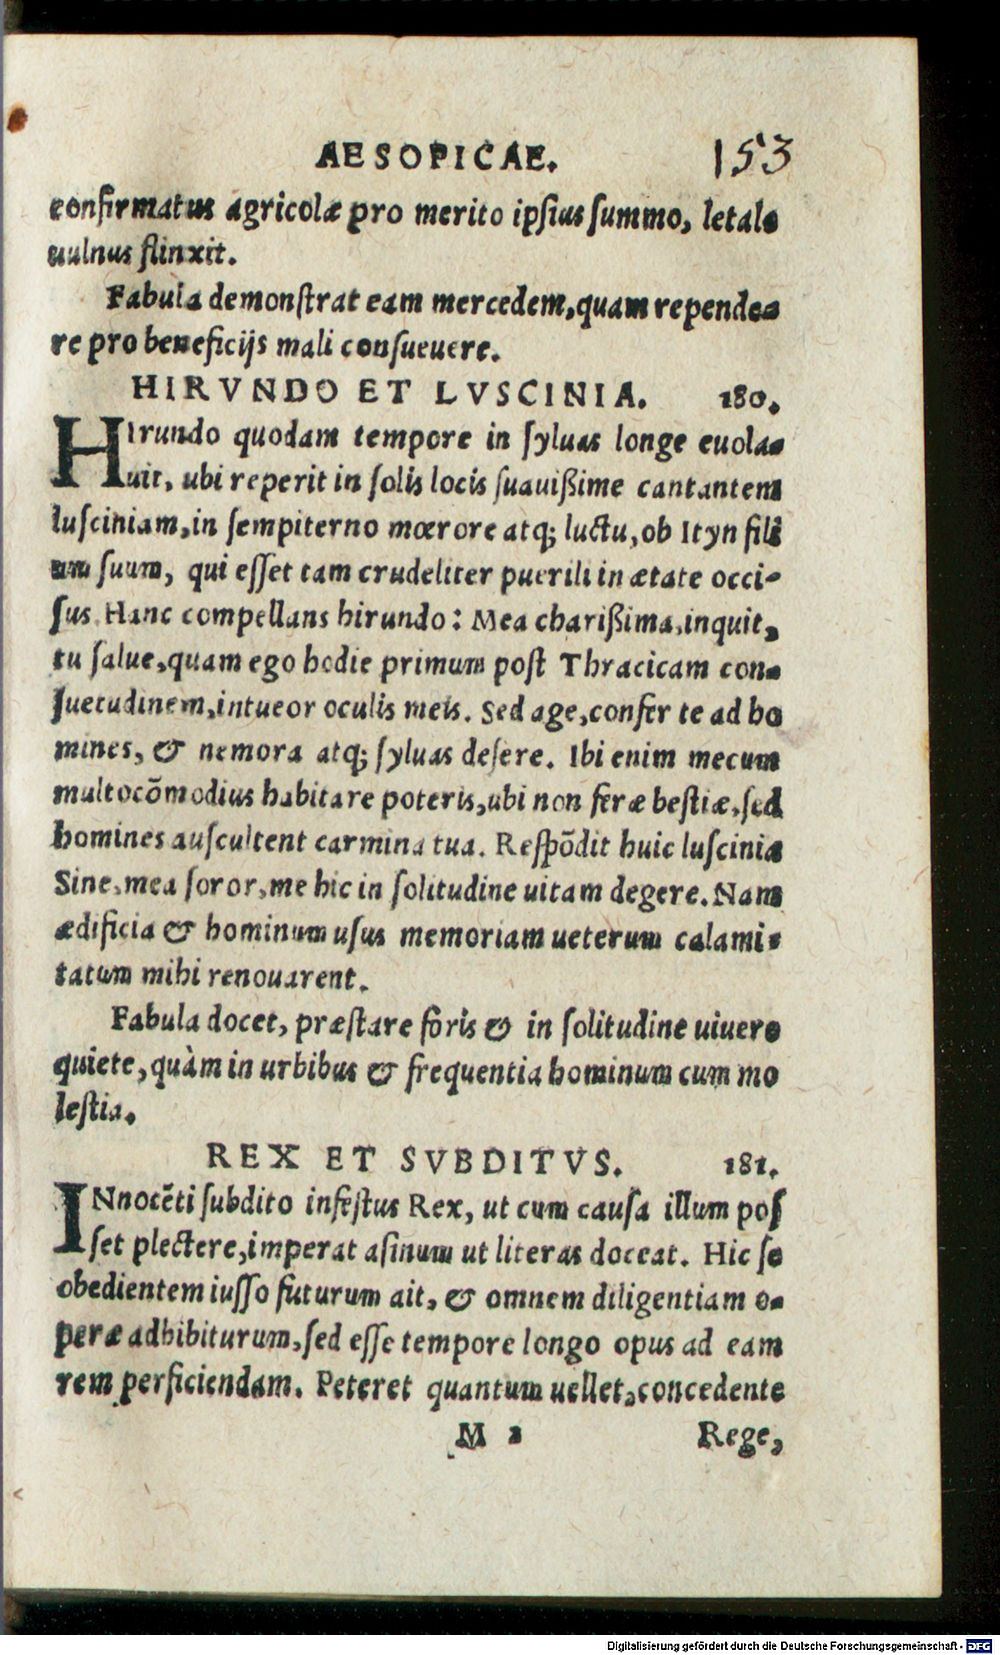 AESOPICAE. 153
confirmatus agricolæ pro merito ipsius summo, letale
uulnus flinxit.
Fabula demonstrat eam mercedem, quam rependea
re pro beneficijs mali consueuere.
HIRVNDO ET LVSCINIA. 180.
HIrundo quodam tempore in syluas longe euola-
uit, ubi reperit in solis locis suauißime cantantem
lusciniam, in sempiterno mœrore atq; luctu, ob Ityn fili
um suum, qui esset tam crudeliter puerili in ætate occi-
sus. Hanc compellans hirundo: Mea charißima, inquit,
tu salue, quam ego hodie primum post Thracicam con-
suetudinem, intueor oculis meis. Sed age, confer te ad ho
mines, & nemora atq; syluas desere. Ibi enim mecum
multo cõmodius habitare poteris, ubi non feræ bestiæ, sed
homines auscultent carmina tua. Respõdit huic luscinia
Sine, mea soror, me hic in solitudine uitam degere. Nam
ædificia & hominum usus memoriam ueterum calami-
tatum mihi renouarent.
Fabula docet, præstare foris & in solitudine uiuere
quiete, quàm in urbibus & frequentia hominum cum mo
lestia.
REX ET SVBDITVS. 181.
INnocẽti subdito infestus Rex, ut cum causa illum pos
set plectere, imperat asinum ut literas doceat. Hic se
obedientem iusso futurum ait, & omnem diligentiam o-
peræ adhibiturum, sed esse tempore longo opus ad eam
rem perficiendam. Peteret quantum uellet, concedente
M 2 Rege,
Digitalisierung gefördert durch die Deutsche Forschungsgemeinschaft - DFG